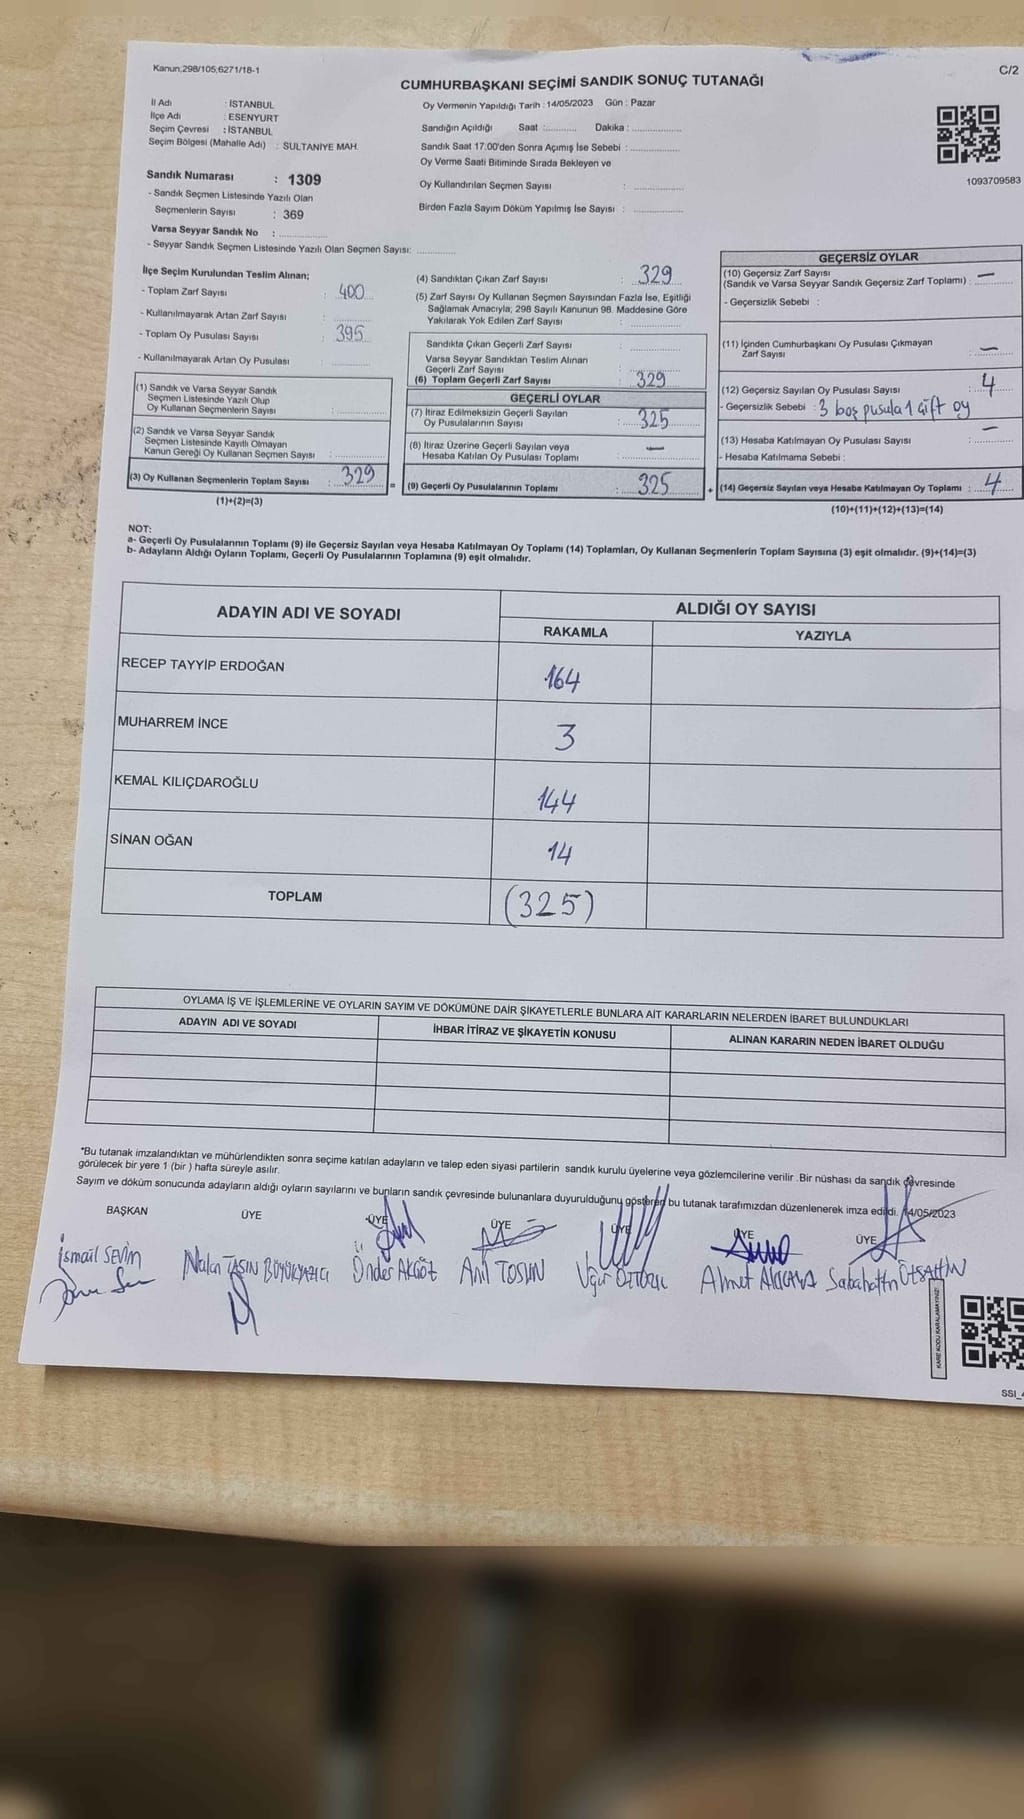 Kanun;298/105;6271/18-1
C/2
CUMHURBAŞKANI SEÇİMİ SANDIK SONUÇ TUTANAĞI
İl Adı : İSTANBUL
İlçe Adı : ESENYURT
Seçim Çevresi : İSTANBUL
Seçim Bölgesi (Mahalle Adı) : SULTANİYE MAH.
Sandık Numarası : 1309
- Sandık Seçmen Listesinde Yazılı Olan
Seçmenlerin Sayısı : 369
Varsa Seyyar Sandık No : ............
- Seyyar Sandık Seçmen Listesinde Yazılı Olan Seçmen Sayısı: ............
Oy Vermenin Yapıldığı Tarih : 14/05/2023 Gün : Pazar
Sandığın Açıldığı Saat :........... Dakika : ................
Sandık Saat 17:00'den Sonra Açımış İse Sebebi : ................
Oy Verme Saati Bitiminde Sırada Bekleyen ve
Oy Kullandırılan Seçmen Sayısı : ................
Birden Fazla Sayım Döküm Yapılmış İse Sayısı : ................
1093709583
İlçe Seçim Kurulundan Teslim Alınan;
- Toplam Zarf Sayısı : 400
- Kullanılmayarak Artan Zarf Sayısı : ............
- Toplam Oy Pusulası Sayısı : 395
- Kullanılmayarak Artan Oy Pusulası : ............
(1) Sandık ve Varsa Seyyar Sandık
Seçmen Listesinde Yazılı Olup
Oy Kullanan Seçmenlerin Sayısı : ............
(2) Sandık ve Varsa Seyyar Sandık
Seçmen Listesinde Kayıtlı Olmayan
Kanun Gereği Oy Kullanan Seçmen Sayısı : ............
(3) Oy Kullanan Seçmenlerin Toplam Sayısı : 329
(1)+(2)=(3)
(4) Sandıktan Çıkan Zarf Sayısı : 329
(5) Zarf Sayısı Oy Kullanan Seçmen Sayısından Fazla İse, Eşitliği
Sağlamak Amacıyla; 298 Sayılı Kanunun 98. Maddesine Göre
Yakılarak Yok Edilen Zarf Sayısı : ............
Sandıkta Çıkan Geçerli Zarf Sayısı : ............
Varsa Seyyar Sandıktan Teslim Alınan
Geçerli Zarf Sayısı : ............
(6) Toplam Geçerli Zarf Sayısı : 329
GEÇERLİ OYLAR
(7) İtiraz Edilmeksizin Geçerli Sayılan
Oy Pusulalarının Sayısı : 325
(8) İtiraz Üzerine Geçerli Sayılan veya
Hesaba Katılan Oy Pusulası Toplamı : —
= (9) Geçerli Oy Pusulalarının Toplamı : 325
GEÇERSİZ OYLAR
(10) Geçersiz Zarf Sayısı
(Sandık ve Varsa Seyyar Sandık Geçersiz Zarf Toplamı) : —
- Geçersizlik Sebebi :
(11) İçinden Cumhurbaşkanı Oy Pusulası Çıkmayan
Zarf Sayısı : —
(12) Geçersiz Sayılan Oy Pusulası Sayısı : 4
- Geçersizlik Sebebi : 3 boş pusula 1 çift oy
(13) Hesaba Katılmayan Oy Pusulası Sayısı : —
- Hesaba Katılmama Sebebi :
+ (14) Geçersiz Sayılan veya Hesaba Katılmayan Oy Toplamı : 4
(10)+(11)+(12)+(13)=(14)
NOT:
a- Geçerli Oy Pusulalarının Toplamı (9) ile Geçersiz Sayılan veya Hesaba Katılmayan Oy Toplamı (14) Toplamları, Oy Kullanan Seçmenlerin Toplam Sayısına (3) eşit olmalıdır. (9)+(14)=(3)
b- Adayların Aldığı Oyların Toplamı, Geçerli Oy Pusulalarının Toplamına (9) eşit olmalıdır.
ADAYIN ADI VE SOYADI ALDIĞI OY SAYISI
RAKAMLA YAZIYLA
RECEP TAYYİP ERDOĞAN 164
MUHARREM İNCE 3
KEMAL KILIÇDAROĞLU 144
SİNAN OĞAN 14
TOPLAM (325)
OYLAMA İŞ VE İŞLEMLERİNE VE OYLARIN SAYIM VE DÖKÜMÜNE DAİR ŞİKAYETLERLE BUNLARA AİT KARARLARIN NELERDEN İBARET BULUNDUKLARI
ADAYIN ADI VE SOYADI İHBAR İTİRAZ VE ŞİKAYETİN KONUSU ALINAN KARARIN NEDEN İBARET OLDUĞU
*Bu tutanak imzalandıktan ve mühürlendikten sonra seçime katılan adayların ve talep eden siyasi partilerin sandık kurulu üyelerine veya gözlemcilerine verilir. Bir nüshası da sandık çevresinde
görülecek bir yere 1 (bir ) hafta süreyle asılır.
Sayım ve döküm sonucunda adayların aldığı oyların sayılarını ve bunların sandık çevresinde bulunanlara duyurulduğunu gösteren bu tutanak tarafımızdan düzenlenerek imza edildi. 14/05/2023
BAŞKAN ÜYE ÜYE ÜYE ÜYE ÜYE ÜYE
İsmail SEVİM Nalan TAŞIN BÜYÜKYAZICI Önder AKGÖZ Anıl TOSUN Uğur ÖZTÜRK Ahmet Sabahattin
KARE KODU KARALAMAYINIZ!